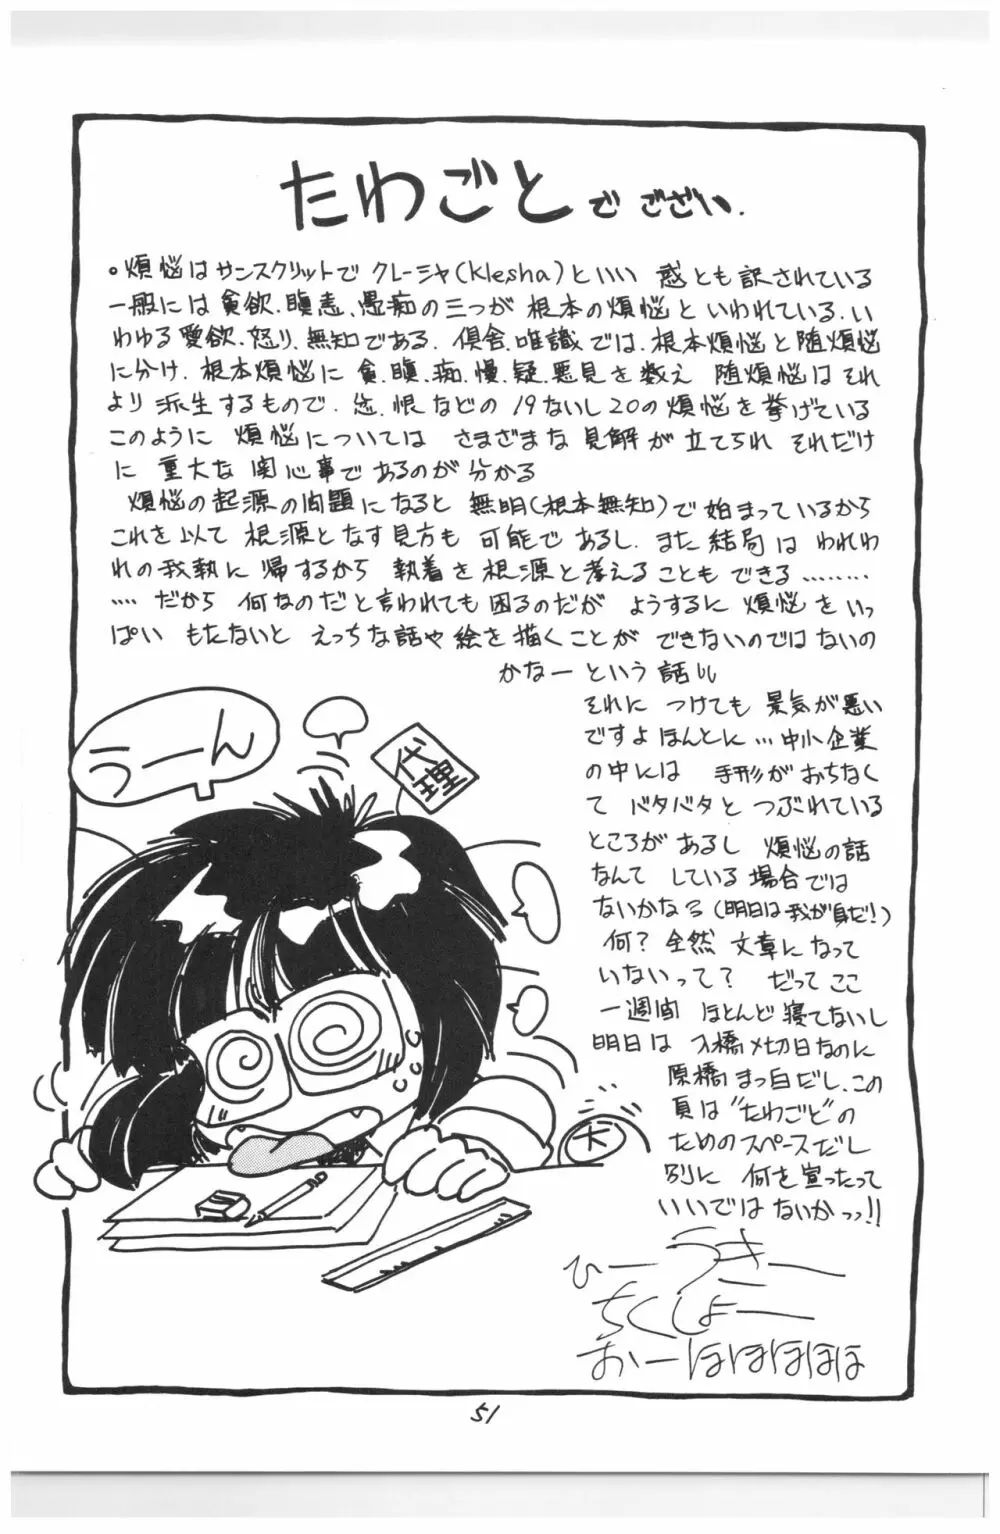 たわごとでござい.
。煩悩はサンスクリットでクレーシャ(Klesha)といい 惑とも訳されている
一般には貪欲.瞋恚、愚痴の三つが根本の煩悩といわれている.い
わゆる愛欲.怒り.無知である.倶舎.唯識では.根本煩悩と随煩悩
に分け.根本煩悩に貪.瞋.痴.慢.疑.悪見を数え 随煩悩はそれ
より派生するもので.忿.恨などの19ないし20の煩悩を挙げている
このように 煩悩については さまざまな見解が立てられ それだけ
に 重大な関心事であるのが分かる
煩悩の起源の問題になると 無明(根本無知)で始まっているから
これを以て 根源となす見方も可能であるし.また結局はわれわ
れの我執に帰するから 執着を根源と考えることもできる………
…. だから 何なのだと言われても困るのだが ようするに 煩悩をいっ
ぱい もたないと えっちな話や絵を描くことが できないのではないの
かなーという話
それに つけても 景気が悪い
ですよ ほんとに…中小企業
の中には 手形がおちなく
て バタバタと つぶれている
ところが あるし 煩悩の話
なんて している場合では
ないかなろ(明日は我が身だ!)
何? 全然 文章になって
いないって? だってここ
一週間 ほとんど寝てないし
明日は 入稿〆切日なのに
原稿まっ白だし.この
頁は"たわごと"の
ためのスペースだし
別に 何を宣ったって
いいでは ないかっっ!!
ひー うきー
ちくしょー
おーほほほほほ
うーん
代理
大
51